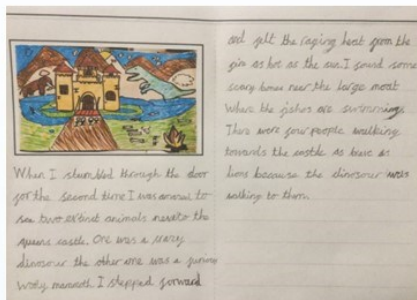 When I stumbled through the door
for the second time I was amazed to
see two extinct animals next to the
queens castle. One was a scary
dinosour the other one was a furious
wooly mammoth. I stepped forward
and felt the raging heat from the
fire as hot as the sun. I found some
scary bones near the large moat
where the fishes are swimming.
There were four people walking
towards the castle as brave as
lions because the dinosour was
nothing to them.